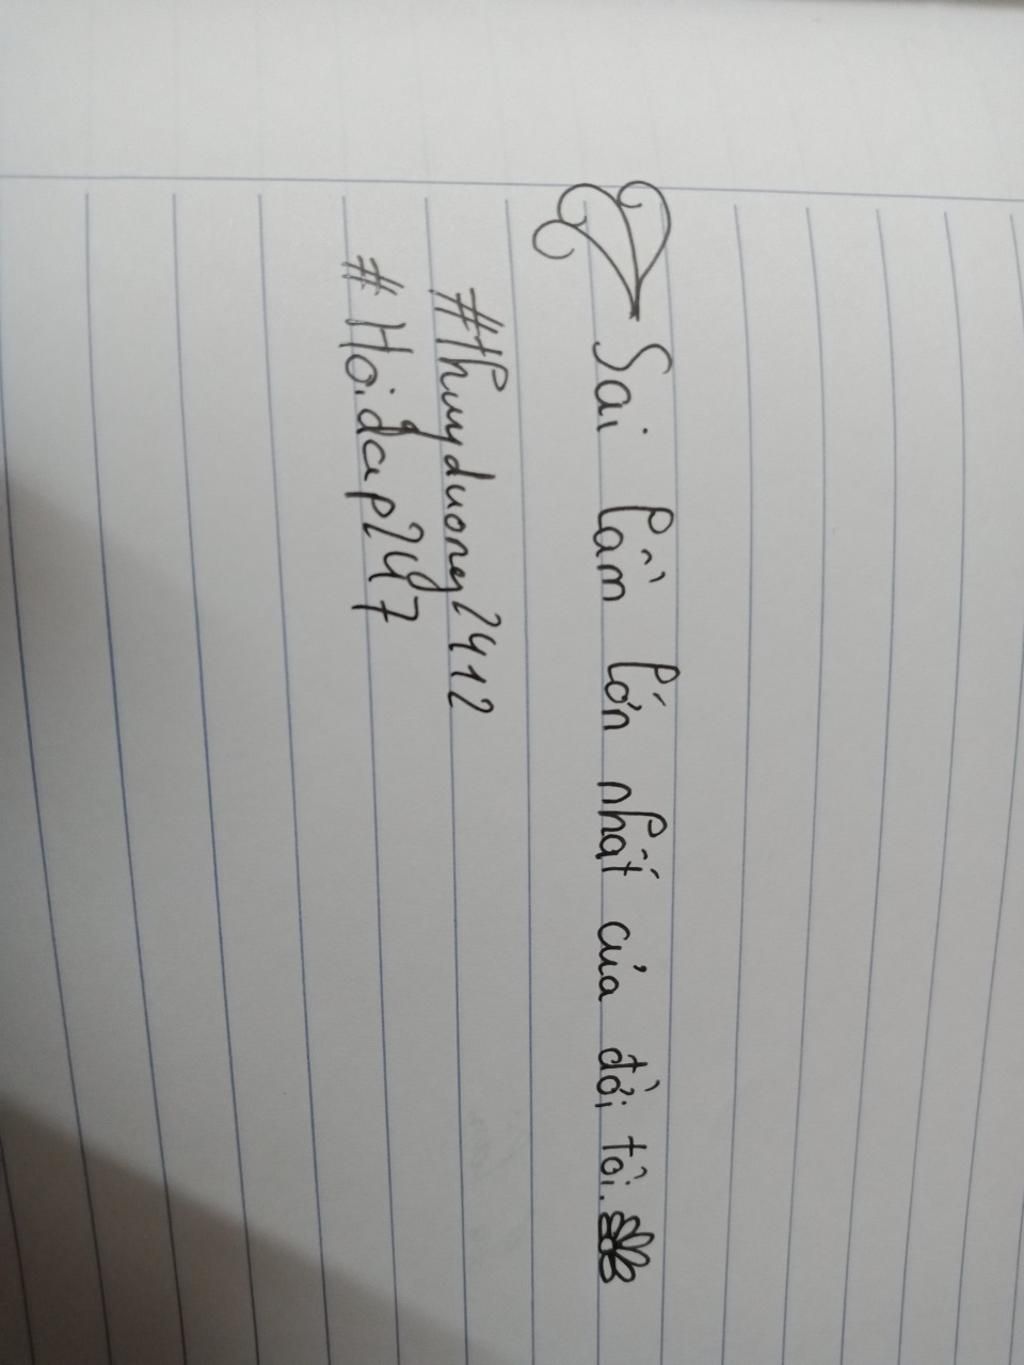 Sai lầm lớn nhất của đời tôi.
#Thuyduong2412
#Hoidap247